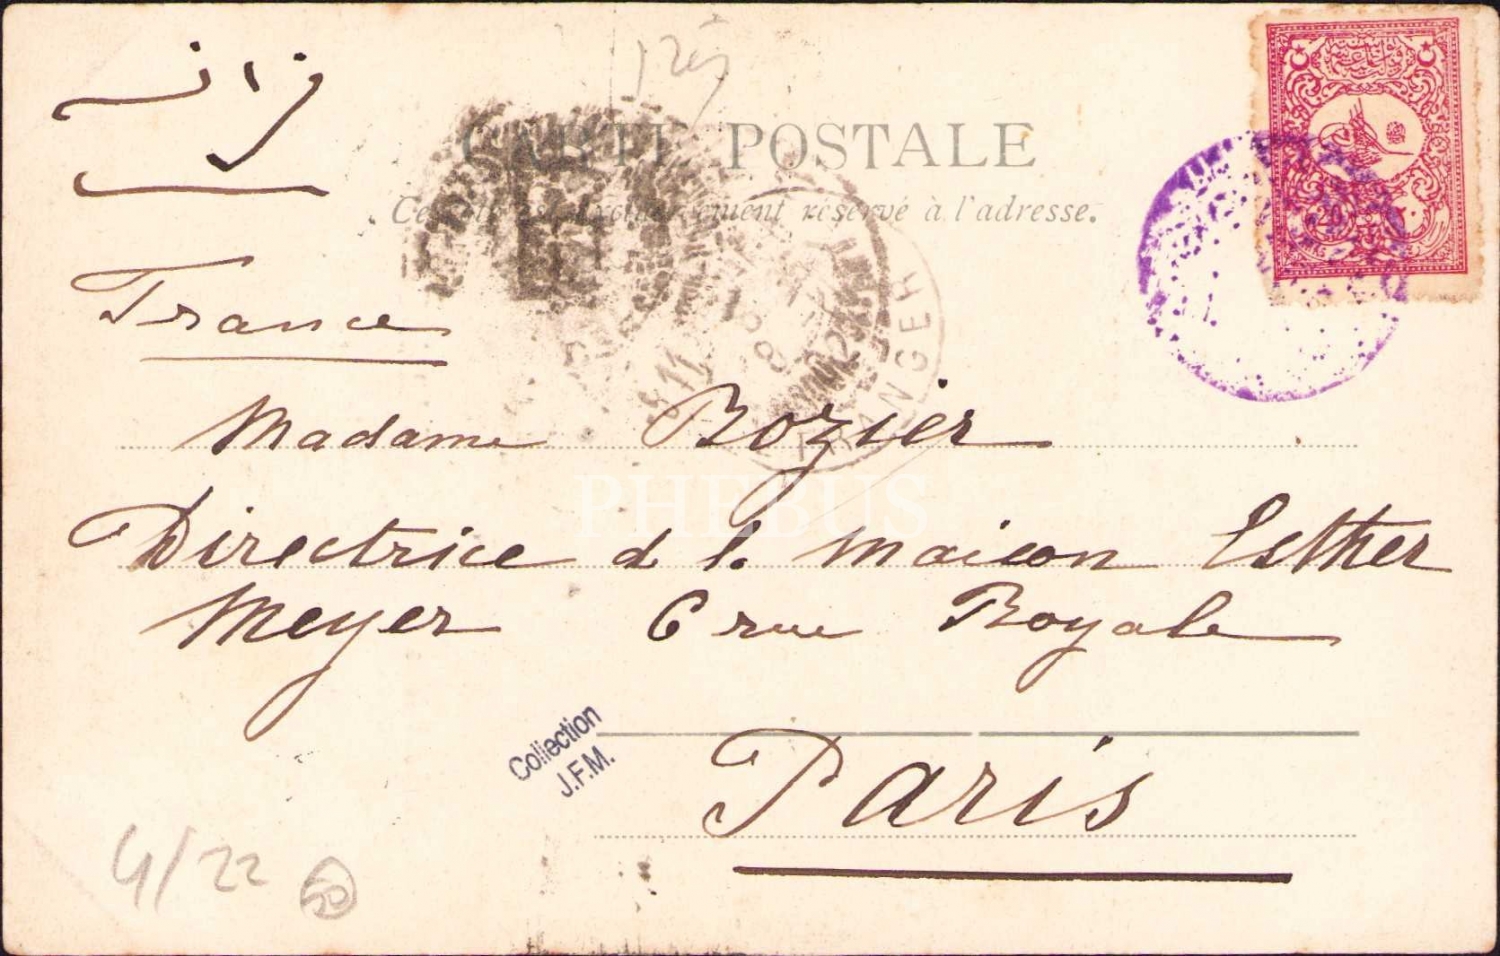 CARTE POSTALE
Ce côté est exclusivement réservé à l'adresse.
فرانسه
France
ETRANGER
Madame Bozier
PHEBUS
Directrice d l. maison Esther
Meyer 6 rue Royale
Collection
J.F.M.
Paris
4/22
50
20